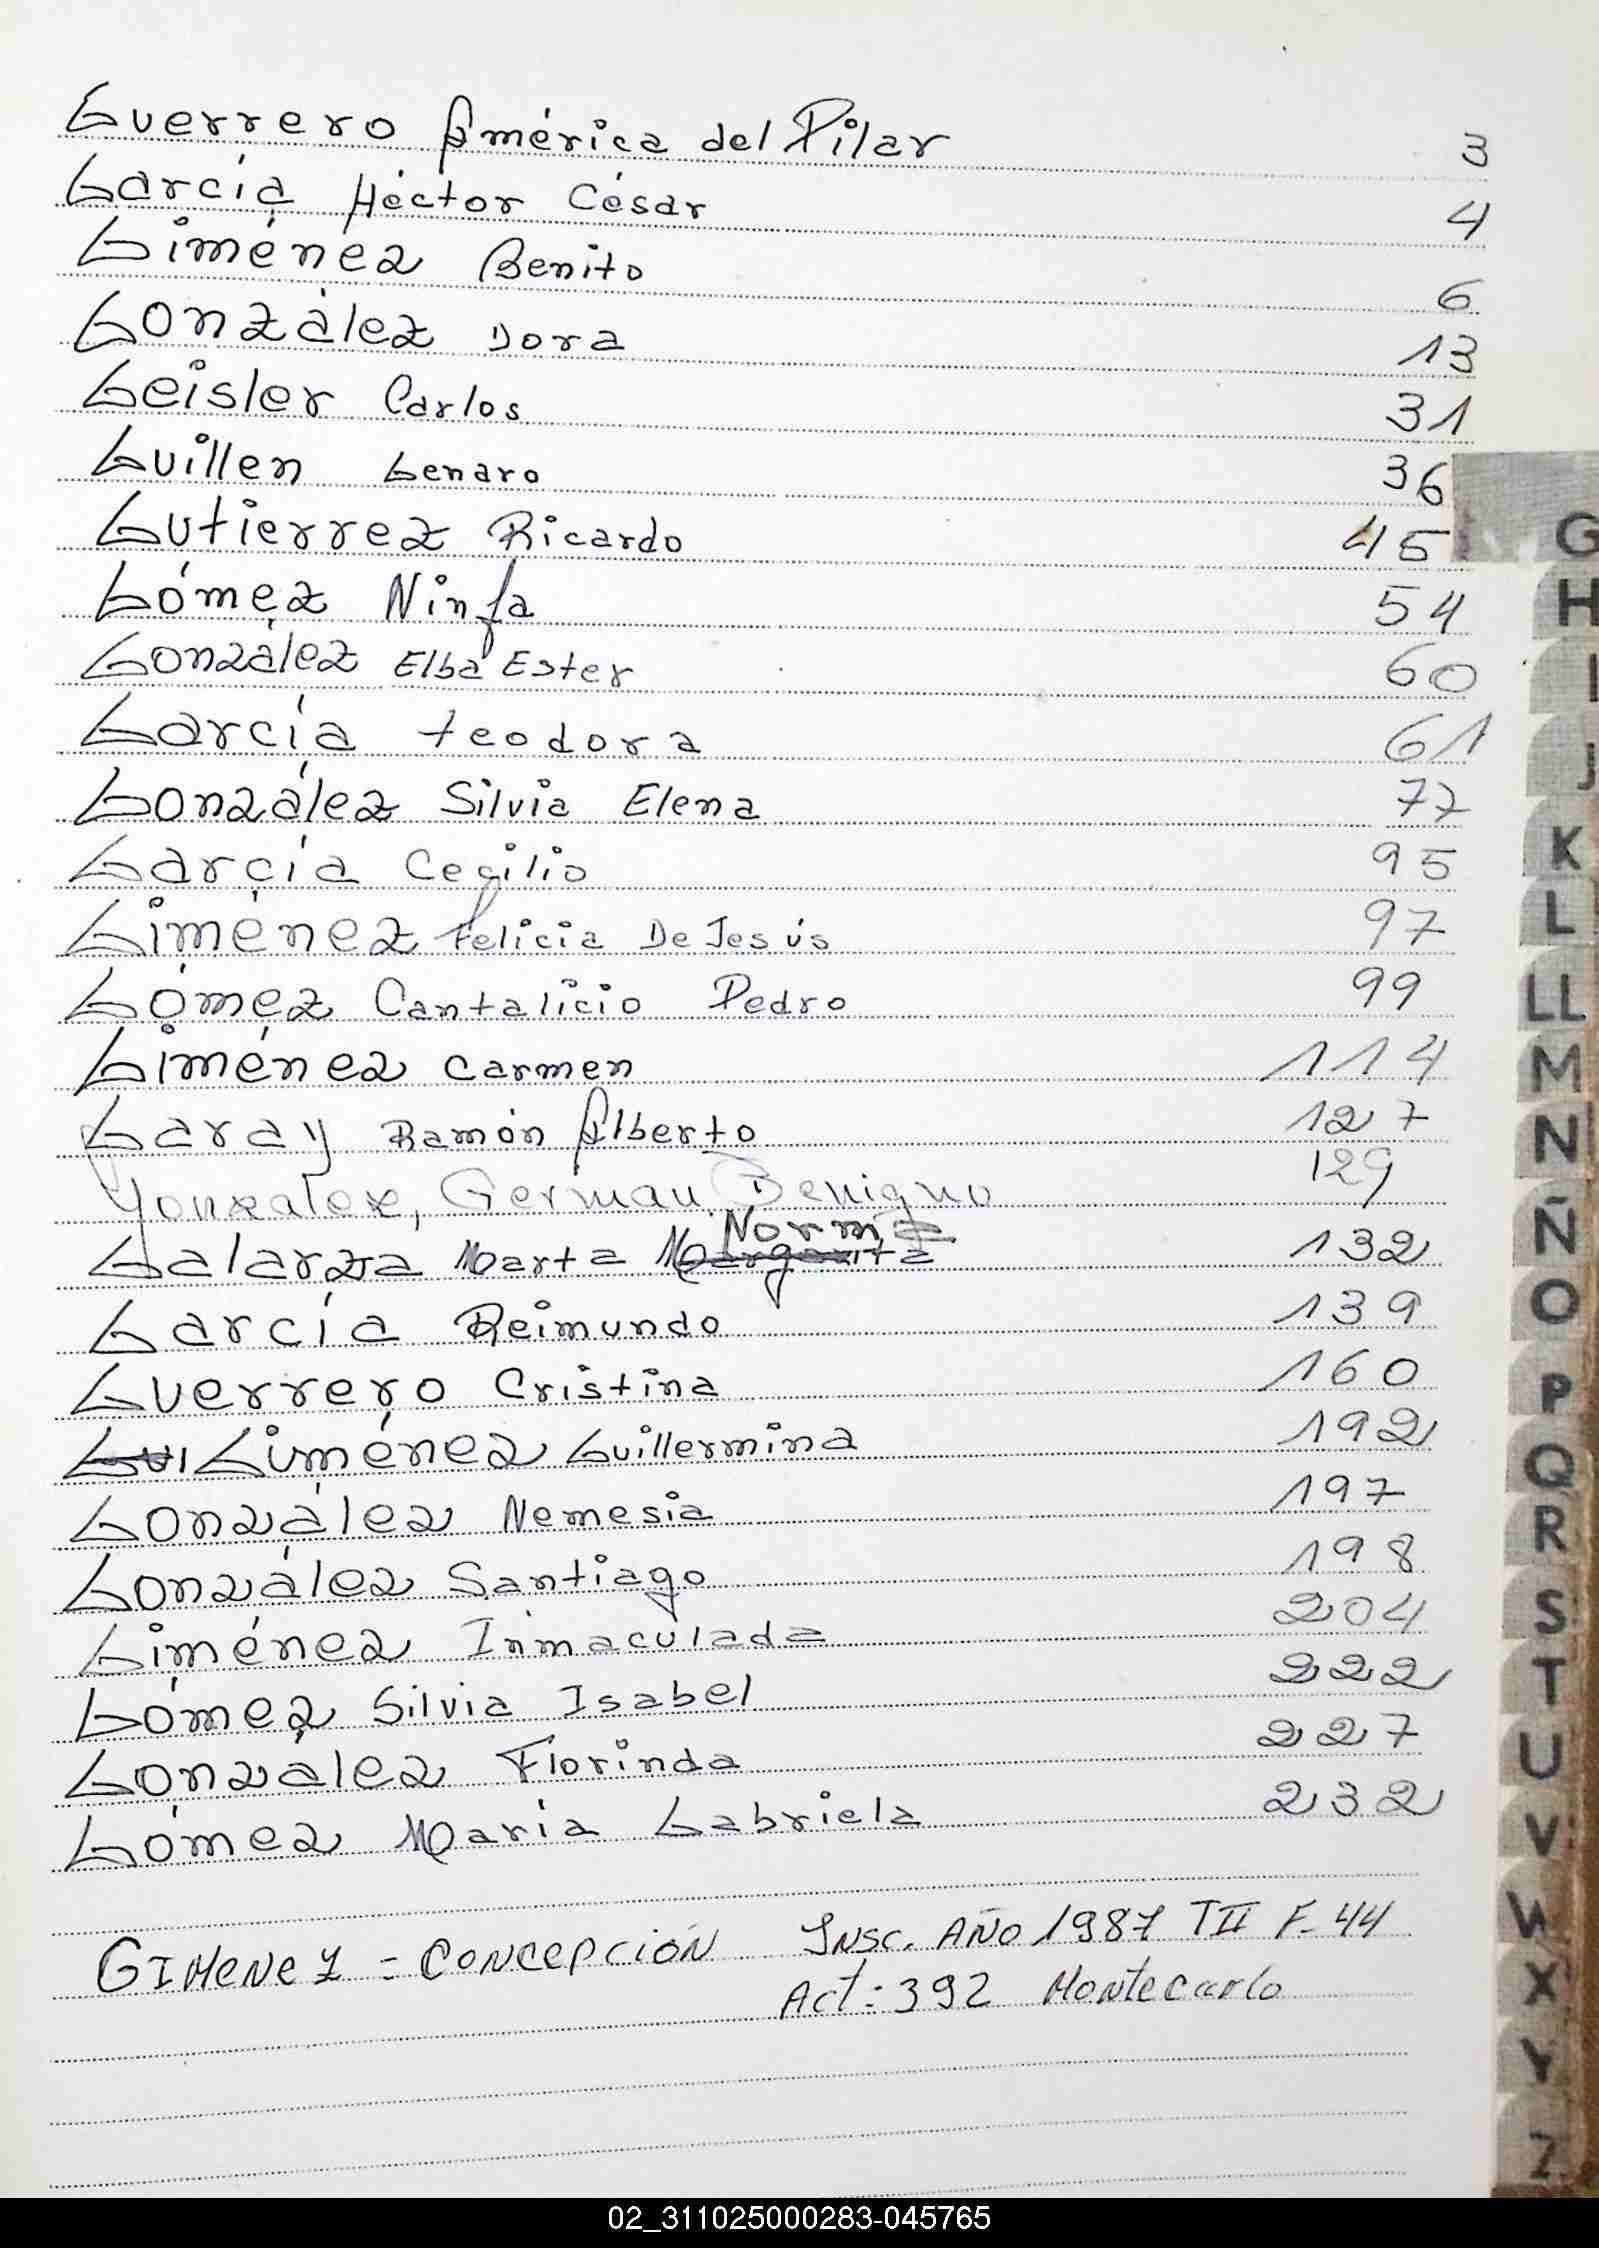 Guerrero América del Pilar 3
García Héctor César 4
Giménez Benito 6
González Dora 13
Geisler Carlos 31
Guillen Genaro 36
Gutierrez Ricardo 45
Gómez Ninfa 54
González Elba Ester 60
García Teodora 61
González Silvia Elena 77
García Cecilio 95
Giménez Felicia De Jesús 97
Gómez Cantalicio Pedro 99
Giménez Carmen 114
Garay Ramón Alberto 127
Gonzalez, German Benigno 129
Norma
Galarza Marta Margarita 132
García Reimundo 139
Guerrero Cristina 160
Gui Giménez Guillermina 192
González Nemesia 197
González Santiago 198
Giménez Inmaculada 204
Gómez Silvia Isabel 222
González Florinda 227
Gómez María Gabriela 232
GIMENEZ = CONCEPCIÓN INSC. AÑO 1987 TII F. 44
Act: 392 Montecarlo
G
H
I
J
K
L
LL
M
N
Ñ
O
P
Q
R
S
T
U
V
W
X
Y
Z
02_311025000283-045765